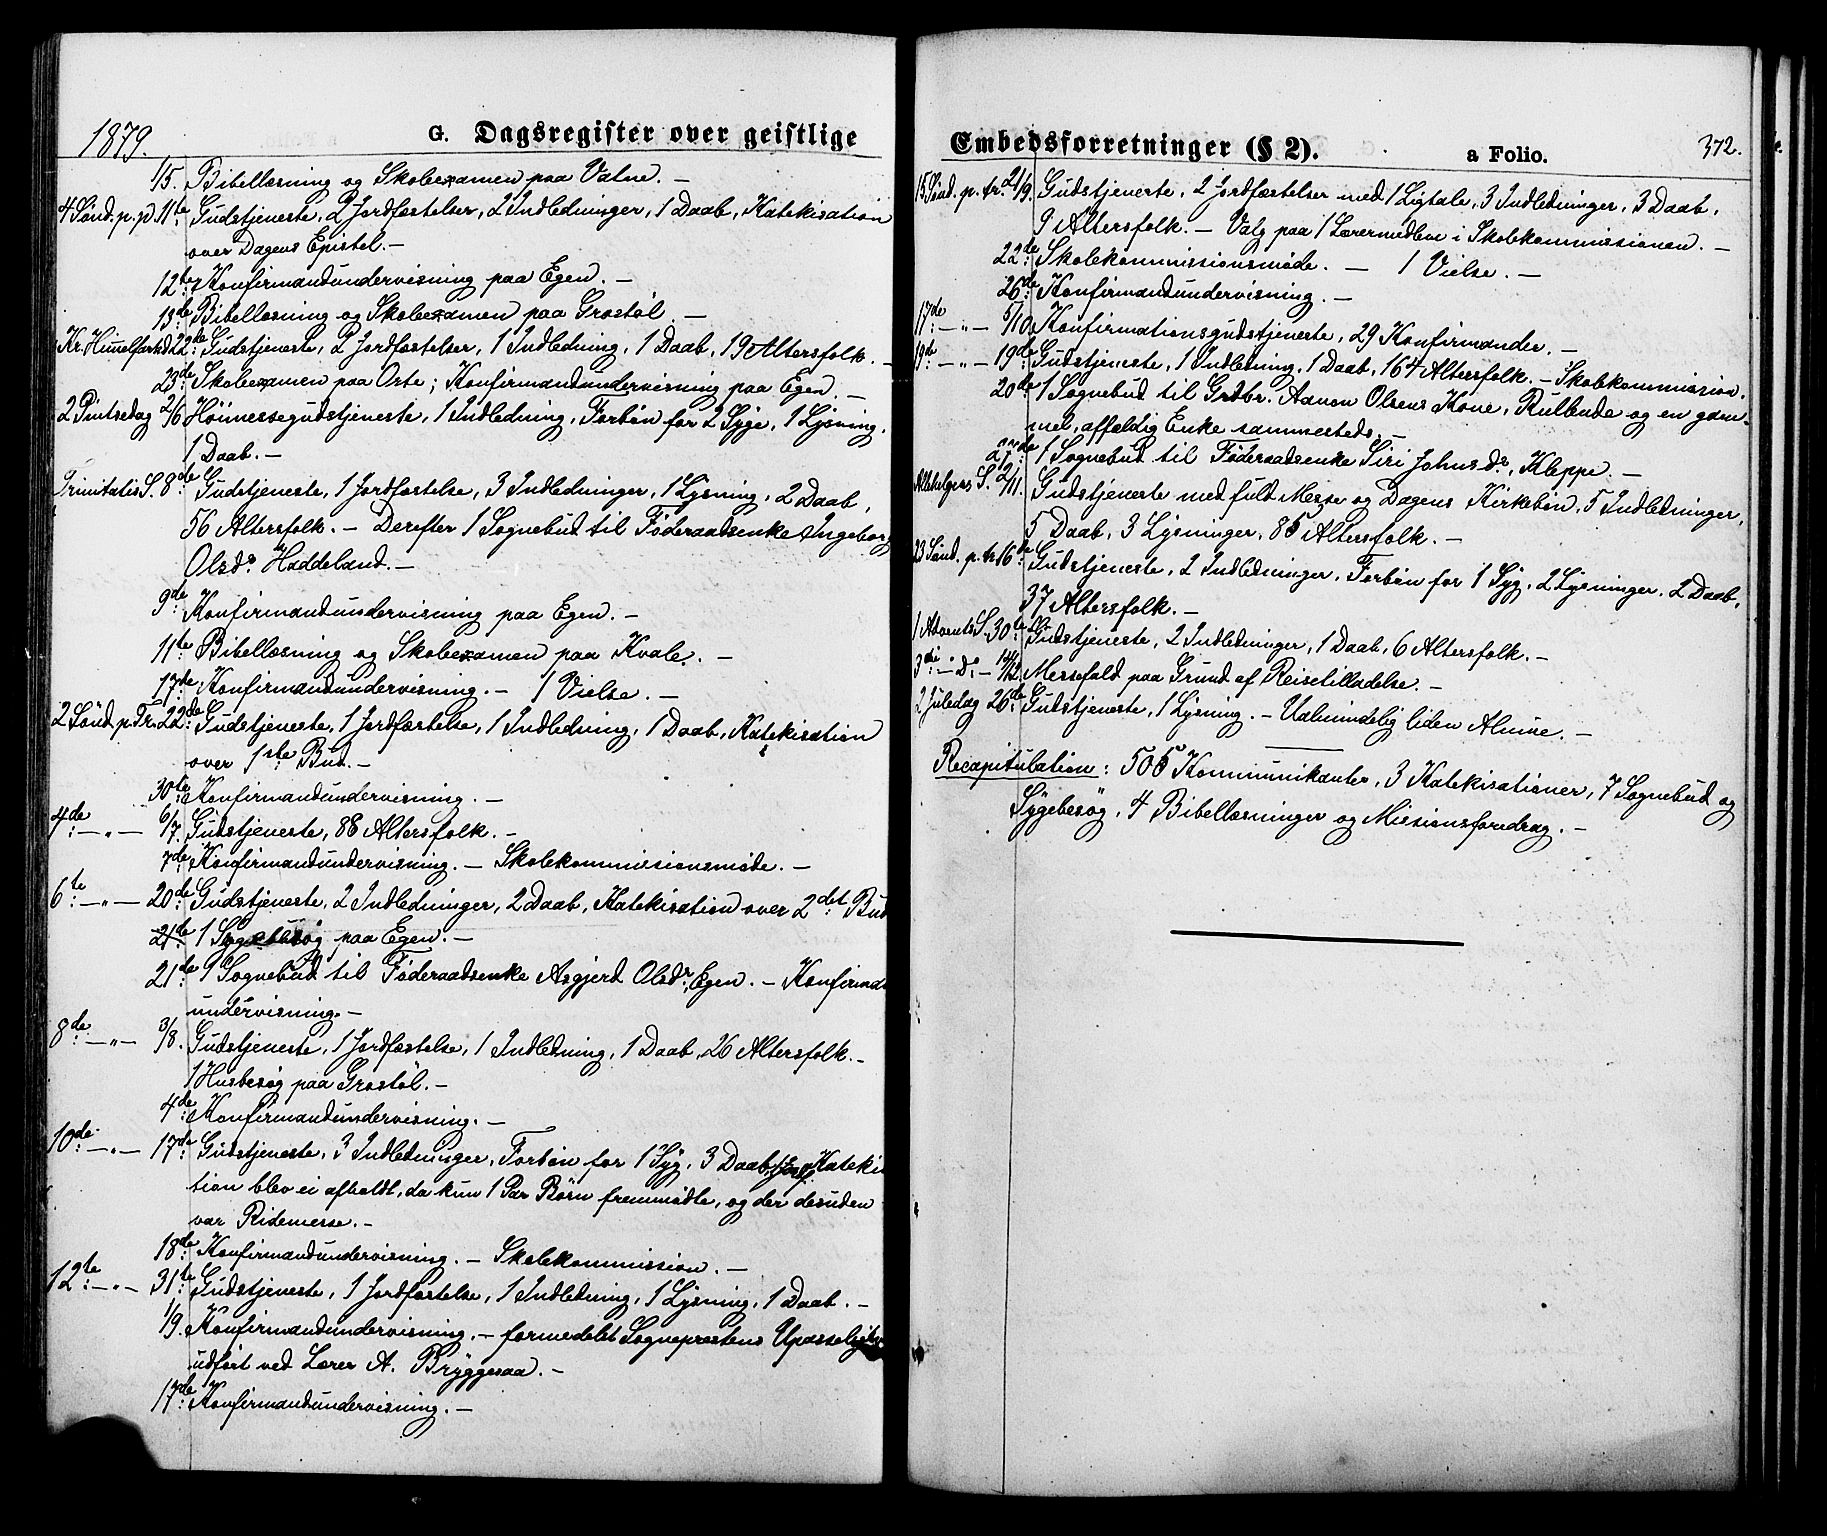 1879.
G. Dagsregister over geistlige
1/5. Bibellæsning og Skolexamen paa Vatne. —
4 Sønd. p. p. 11te Gudstjeneste, 2 Jordfæstelser, 2 Indledninger, 1 Daab, Katekisation
over Dagens Epistel. —
12te Konfirmandundervisning paa Egen. —
13de Bibellæsning og Skolexamen paa Grostøl. —
Kr. Himmelfartsd. 22de Gudstjeneste, 2 Jordfæstelser, 1 Indledning, 1 Daab, 19 Altersfolk. —
23de Skolexamen paa Oste; Konfirmandundervisning paa Egen. —
2 Pintsedag 2/6 Høimessegudstjeneste, 1 Indledning, Forbøn for 2 Syge, 1 Lysning,
1 Daab. —
Trinitatis S. 8de Gudstjeneste, 1 Jordfæstelse, 3 Indledninger, 1 Lysning, 2 Daab,
56 Altersfolk. — Derefter 1 Sognebud til Føderaadsenke Ingeborg
Olsdr. Haddeland. —
9de Konfirmandundervisning paa Egen. —
11te Bibellæsning og Skolexamen paa Kvale. —
17de Konfirmandundervisning. — 1 Vielse. —
2 Sønd. p. Tr. 22de Gudstjeneste, 1 Jordfæstelse, 1 Indledning, 1 Daab, Katekisation
over 1ste Bud. —
30te Konfirmandundervisning. —
4de — " — 6/7. Gudstjeneste, 88 Altersfolk. —
7de Konfirmandundervisning. — Skolekommissionsmøde. —
6te — " — 20de Gudstjeneste, 2 Indledninger, 2 Daab, Katekisation over 2det Bud
21de 1 Sygebesøg paa Egen. —
21de 1 Sognebud til Føderaadsenke Asgjerd Olsdr. Egen. — Konfirmand
undervisning. —
8de — " — 3/8. Gudstjeneste, 1 Jordfæstelse, 1 Indledning, 1 Daab, 26 Altersfolk. —
1 Husbesøg paa Grostøl. —
4de Konfirmandundervisning. —
10de — " — 17de Gudstjeneste, 3 Indledninger, Forbøn for 1 Syg, 3 Daab, Kateki
tion blev ei afholdt, da kun 1 Par Børn fremmødte, og der desuden
var Ridemesse. —
18de Konfirmandundervisning. — Skolekommission. —
12te — " — 31te Gudstjeneste, 1 Jordfæstelse, 1 Indledning, 1 Lysning, 1 Daab. —
1/9. Konfirmandundervisning. — formedelst Sognepræstens
udført ved Lærer A. Bryggesaa. —
17de Konfirmandundervisning. —
Embedsforretninger (§ 2).
a Folio.
372.
15 Sønd. p. tr. 21/9. Gudstjeneste, 2 Jordfæstelser med 1 Ligtale, 3 Indledninger, 3 Daab,
9 Altersfolk. — Valg paa 1 Lærermedlem i Skolekommissionen. —
22de Skolekommissionsmøde. — 1 Vielse. —
26de Konfirmandundervisning. —
17de — " — 5/10. Konfirmationsgudstjeneste, 29 Konfirmander. —
19de — " — 19de Gudstjeneste, 1 Indledning, 1 Daab, 164 Altersfolk. — Skolekommission.
20de 1 Sognebud til Grdbr. Aanon Olsens Kone, Rullende og en gam-
mel, affældig Enke sammesteds. —
27de 1 Sognebud til Føderaadsenke Siri Johnsdr. Kleppe. —
Allehelgens S. 2/11. Gudstjeneste med fuld Messe og Dagens Kirkebøn, 5 Indledninger,
5 Daab, 3 Lysninger, 85 Altersfolk. —
23 Sønd. p. tr. 16de Gudstjeneste, 2 Indledninger, Forbøn for 1 Syg, 2 Lysninger, 2 Daab,
37 Altersfolk. —
1 Advents S. 30te Gudstjeneste, 2 Indledninger, 1 Daab, 6 Altersfolk. —
3die — D. — 14/12 Messefald paa Grund af Reisetilladelse. —
2 Juledag 26de Gudstjeneste, 1 Lysning. — Ualmindelig liden Almue. —
Recapitulation: 505 Kommunikanter, 3 Katekisationer, 7 Sognebud og
Sygebesøg, 4 Bibellæsninger og Missionsforedrag. —